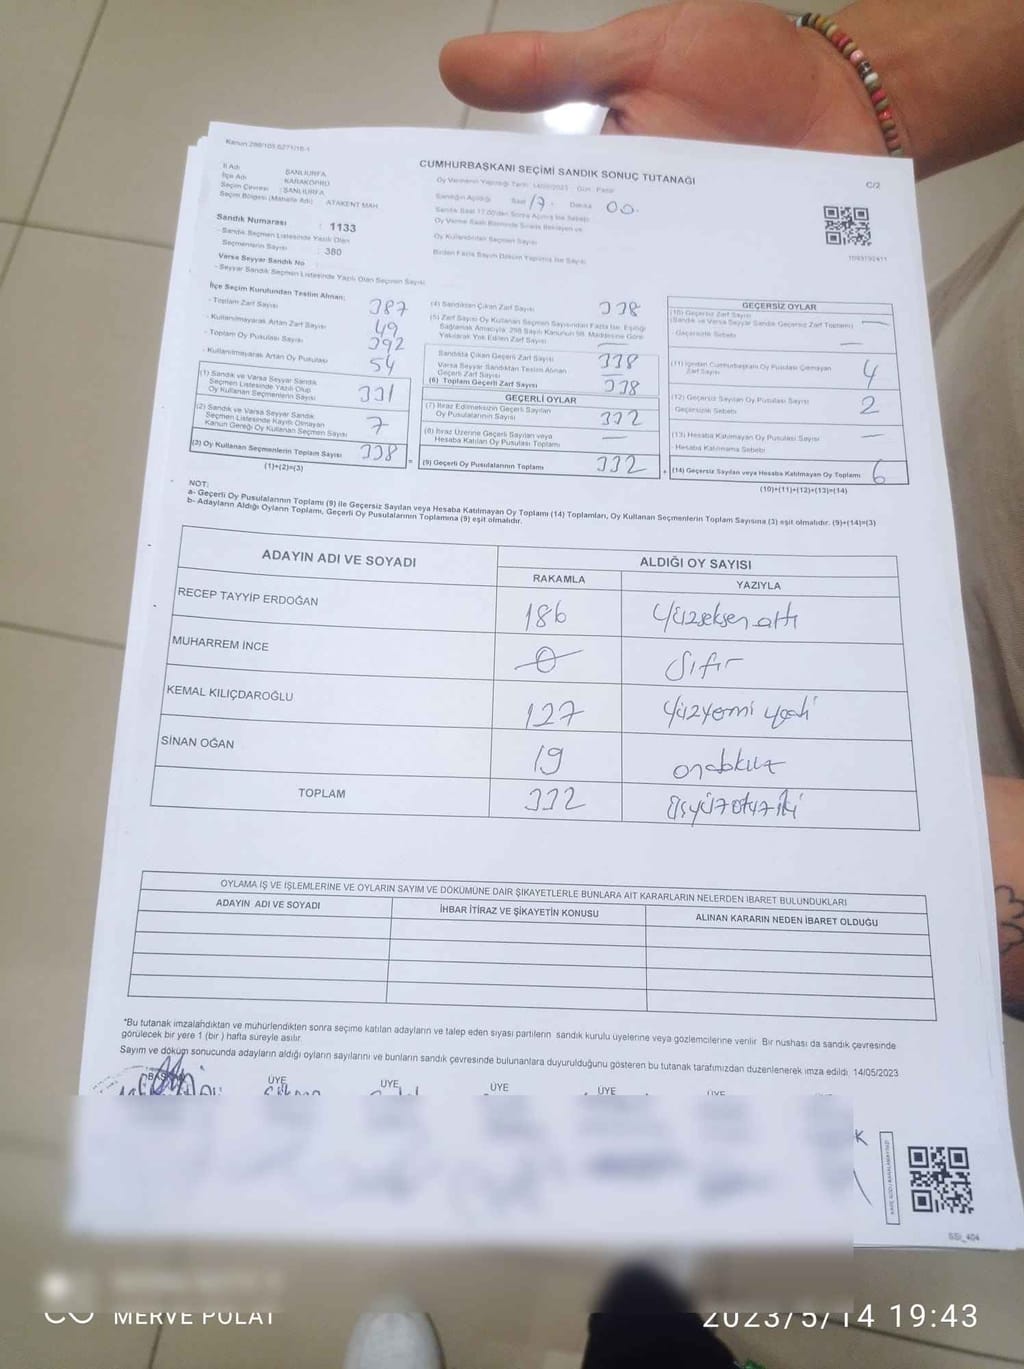 Kanun 298/105,6271/16-1
CUMHURBAŞKANI SEÇİMİ SANDIK SONUÇ TUTANAĞI
C/2
İl Adı ŞANLIURFA
İlçe Adı KARAKÖPRÜ
Seçim Çevresi : ŞANLIURFA
Seçim Bölgesi (Mahalle Adı) ATAKENT MAH
Oy Vermenin Yapıldığı Tarih 14/05/2023 Gün Pazar
Sandığın Açıldığı Saat 17 Dakika 00
Sandık Saat 17.00'den Sonra Açılmış İse Sebebi
Oy Verme Saati Bitiminde Sırada Bekleyen ve
Oy Kullandırılan Seçmen Sayısı
Birden Fazla Sayım Döküm Yapılmış İse Sayısı
Sandık Numarası : 1133
- Sandık Seçmen Listesinde Yazılı Olan
Seçmenlerin Sayısı : 380
Varsa Seyyar Sandık No
- Seyyar Sandık Seçmen Listesinde Yazılı Olan Seçmen Sayısı
İlçe Seçim Kurulundan Teslim Alınan:
- Toplam Zarf Sayısı 387
- Kullanılmayarak Artan Zarf Sayısı 49
- Toplam Oy Pusulası Sayısı 392
- Kullanılmayarak Artan Oy Pusulası 54
(1) Sandık ve Varsa Seyyar Sandık
Seçmen Listesinde Yazılı Olup
Oy Kullanan Seçmenlerin Sayısı 331
(2) Sandık ve Varsa Seyyar Sandık
Seçmen Listesinde Kayıtlı Olmayan
Kanun Gereği Oy Kullanan Seçmen Sayısı 7
(3) Oy Kullanan Seçmenlerin Toplam Sayısı 338
(1)+(2)=(3)
(4) Sandıktan Çıkan Zarf Sayısı 338
(5) Zarf Sayısı Oy Kullanan Seçmen Sayısından Fazla İse, Eşitliği
Sağlamak Amacıyla, 298 Sayılı Kanunun 98. Maddesine Göre
Yakılarak Yok Edilen Zarf Sayısı —
Sandıkta Çıkan Geçerli Zarf Sayısı 338
Varsa Seyyar Sandıktan Teslim Alınan
Geçerli Zarf Sayısı —
(6) Toplam Geçerli Zarf Sayısı 338
GEÇERLİ OYLAR
(7) İtiraz Edilmeksizin Geçerli Sayılan
Oy Pusulalarının Sayısı 332
(8) İtiraz Üzerine Geçerli Sayılan veya
Hesaba Katılan Oy Pusulası Toplamı —
(9) Geçerli Oy Pusulalarının Toplamı 332
GEÇERSİZ OYLAR
(10) Geçersiz Zarf Sayısı
(Sandık ve Varsa Seyyar Sandık Geçersiz Zarf Toplamı) —
Geçersizlik Sebebi —
(11) İçinden Cumhurbaşkanı Oy Pusulası Çıkmayan
Zarf Sayısı 4
(12) Geçersiz Sayılan Oy Pusulası Sayısı 2
Geçersizlik Sebebi
(13) Hesaba Katılmayan Oy Pusulası Sayısı —
- Hesaba Katılmama Sebebi
(14) Geçersiz Sayılan veya Hesaba Katılmayan Oy Toplamı 6
(10)+(11)+(12)+(13)=(14)
NOT:
a- Geçerli Oy Pusulalarının Toplamı (9) ile Geçersiz Sayılan veya Hesaba Katılmayan Oy Toplamı (14) Toplamları, Oy Kullanan Seçmenlerin Toplam Sayısına (3) eşit olmalıdır. (9)+(14)=(3)
b- Adayların Aldığı Oyların Toplamı, Geçerli Oy Pusulalarının Toplamına (9) eşit olmalıdır.
ADAYIN ADI VE SOYADI ALDIĞI OY SAYISI
RAKAMLA YAZIYLA
RECEP TAYYİP ERDOĞAN 186 Yüzseksenaltı
MUHARREM İNCE 0 Sıfır
KEMAL KILIÇDAROĞLU 127
SİNAN OĞAN 19
TOPLAM 332
OYLAMA İŞ VE İŞLEMLERİNE VE OYLARIN SAYIM VE DÖKÜMÜNE DAİR ŞİKAYETLERLE BUNLARA AİT KARARLARIN NELERDEN İBARET BULUNDUKLARI
ADAYIN ADI VE SOYADI İHBAR İTİRAZ VE ŞİKAYETİN KONUSU ALINAN KARARIN NEDEN İBARET OLDUĞU
*Bu tutanak imzalandıktan ve mühürlendikten sonra seçime katılan adayların ve talep eden siyasi partilerin sandık kurulu üyelerine veya gözlemcilerine verilir. Bir nüshası da sandık çevresinde
görülecek bir yere 1 (bir) hafta süreyle asılır.
Sayım ve döküm sonucunda adayların aldığı oyların sayılarını ve bunların sandık çevresinde bulunanlara duyurulduğunu gösteren bu tutanak tarafımızdan düzenlenerek imza edildi. 14/05/2023
ÜYE ÜYE ÜYE ÜYE ÜYE
SSI_404
MERVE POLAT
2023/5/14 19:43